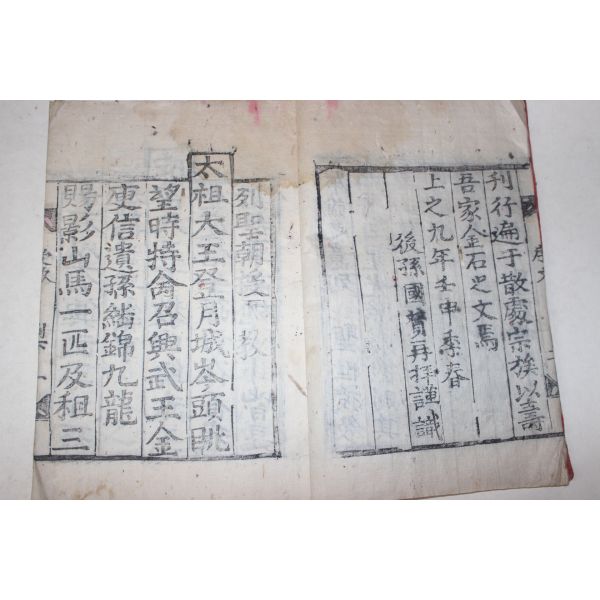 刊行遍于散處宗族以壽
吾家金石之文焉
上之九年壬申季春
後孫國賛再拜謹識
列聖朝受教
太祖大王登月城岑頭眺
望時特命召興武王金
庾信遺孫繙錦九龍
賜影山馬一匹及租三